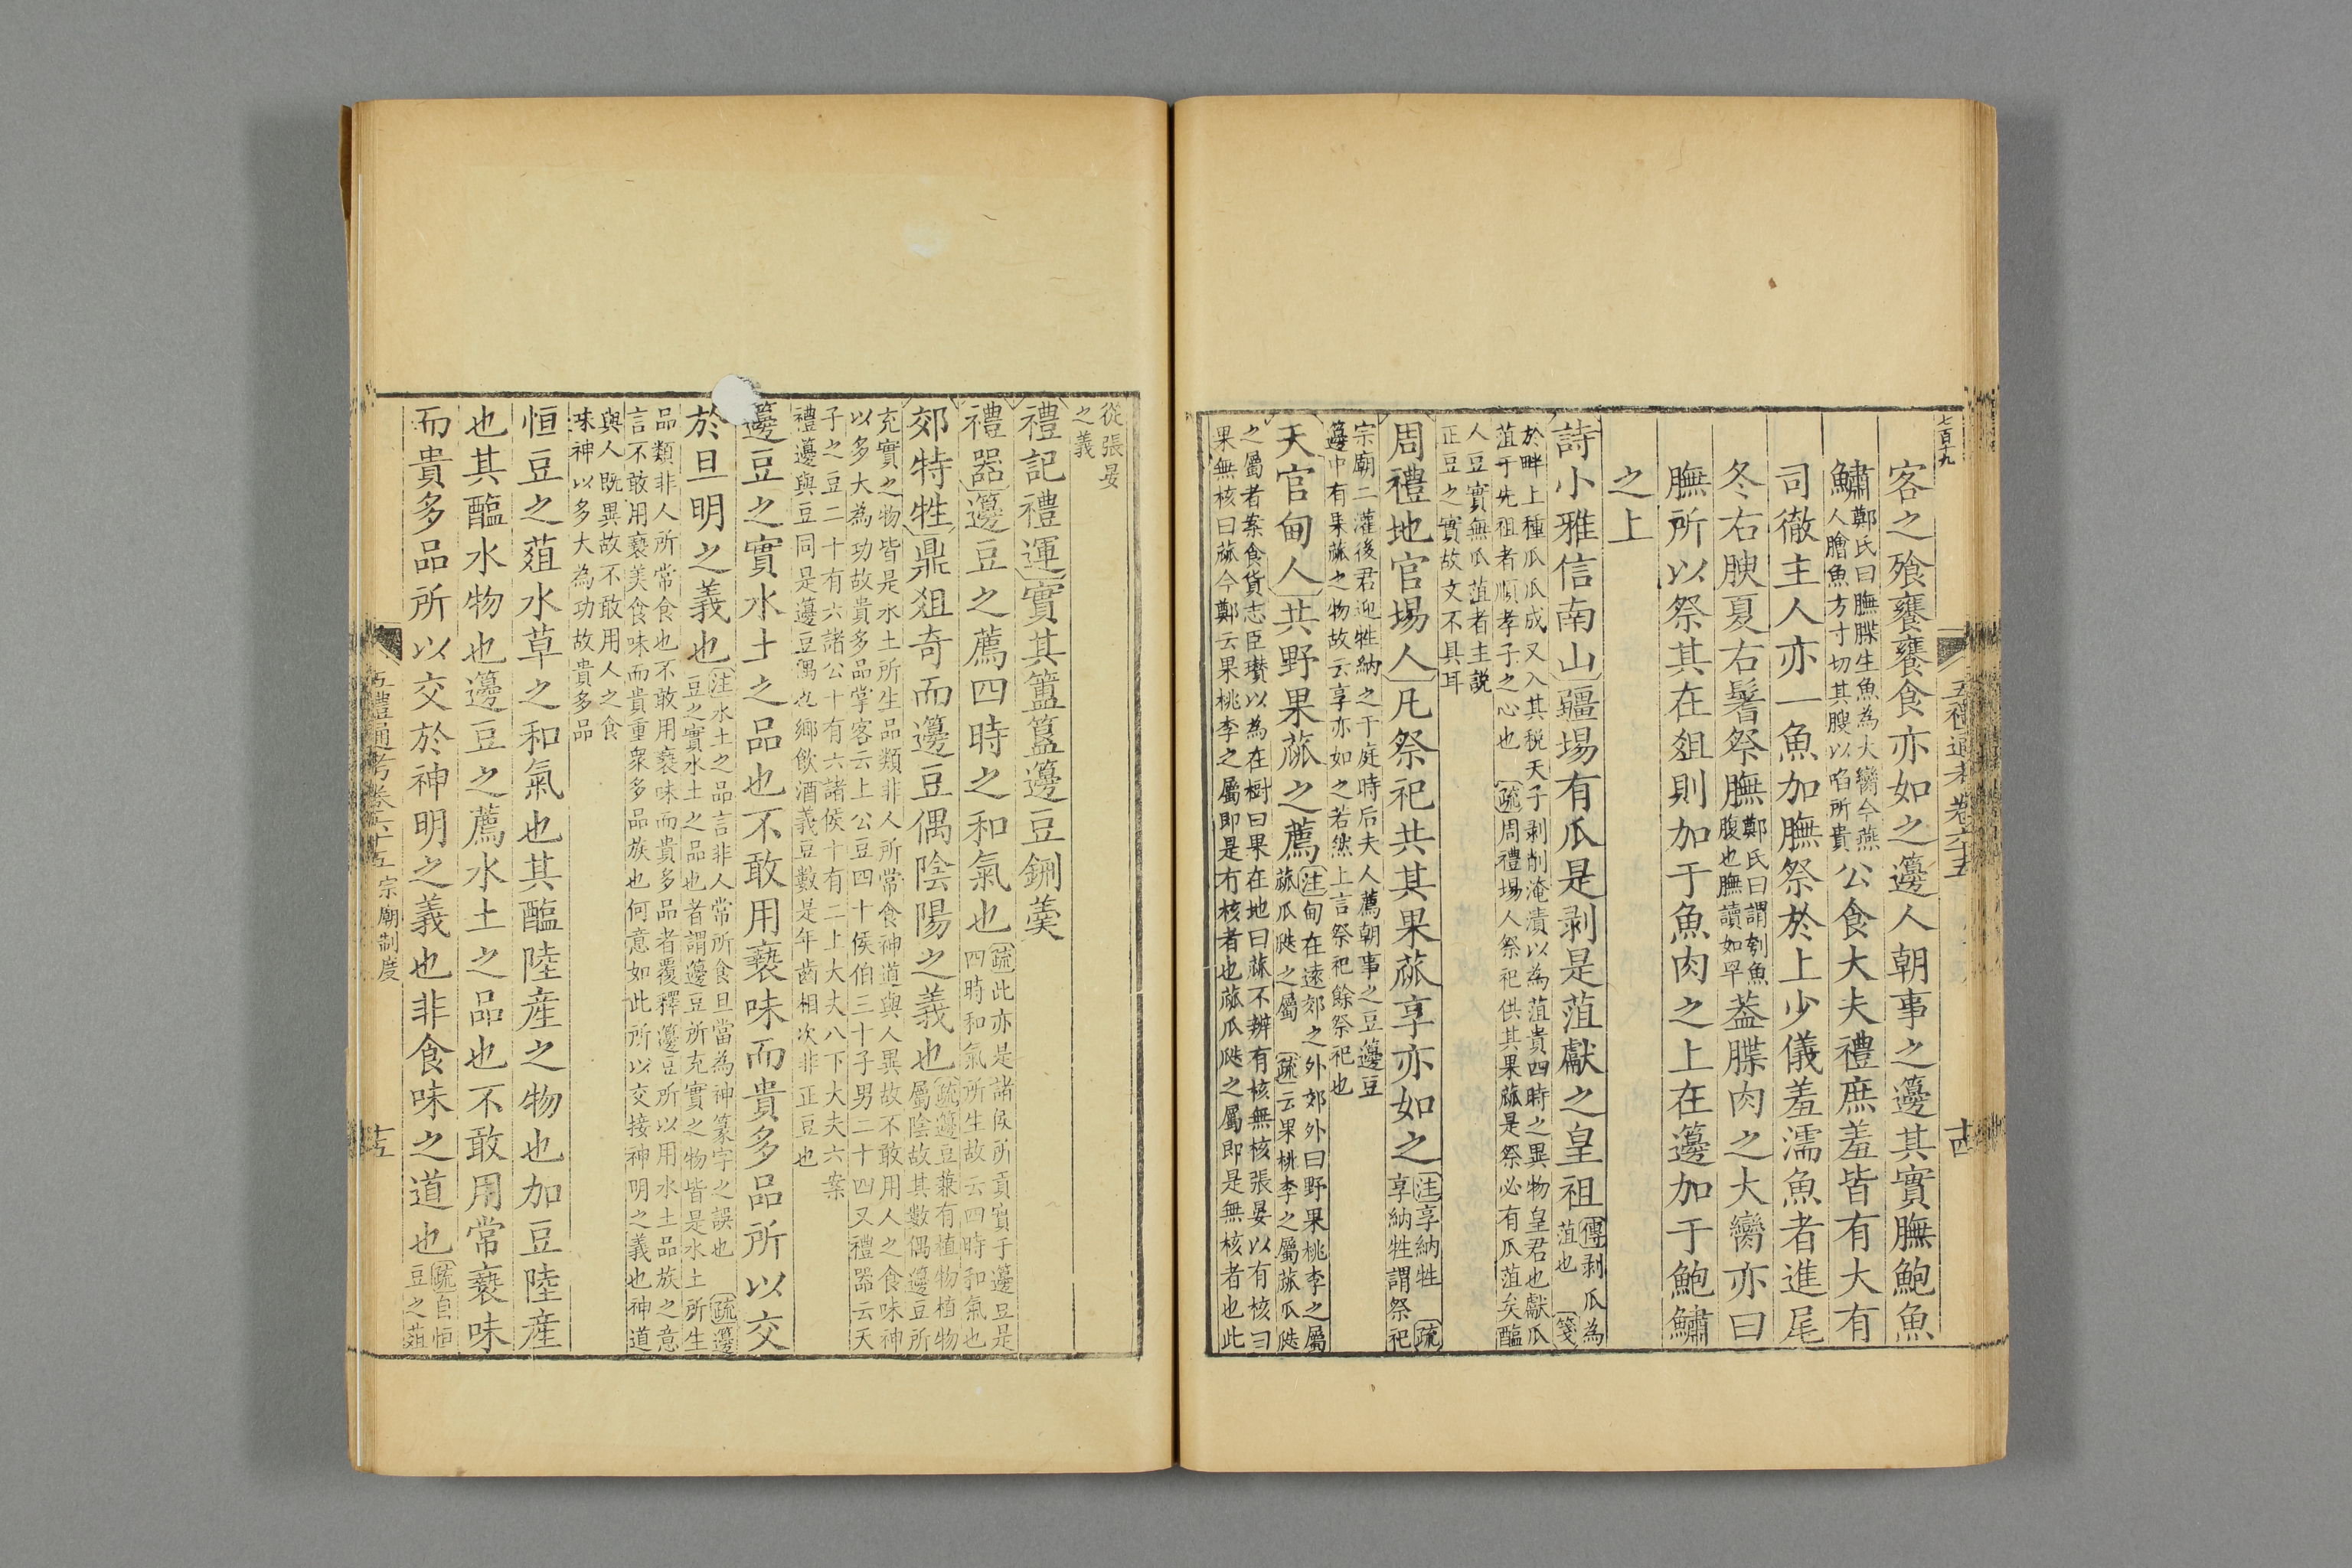 七百十九
五禮通考卷六十五
十四
客之飱饔餼食亦如之籩人朝事之籩其實膴鮑魚
鱐鄭氏曰膴䐑生魚為大臠今燕
人膾魚方寸切其腴以啗所貴公食大夫禮庶羞皆有大有
司徹主人亦一魚加膴祭於上少儀羞濡魚者進尾
冬右腴夏右鬐祭膴鄭氏曰謂刳魚
腹也膴讀如冔葢䐑肉之大臠亦曰
膴所以祭其在俎則加于魚肉之上在籩加于鮑鱐
之上
詩小雅信南山疆埸有瓜是剥是菹獻之皇祖傳剥瓜為
菹也 箋
於畔上種瓜瓜成又入其稅天子剥削淹漬以為菹貴四時之異物皇君也獻瓜
菹于先祖者順孝子之心也 疏周禮場人祭祀供其果蓏是祭必有瓜菹矣醢
人豆實無瓜菹者主説
正豆之實故文不具耳
周禮地官場人凡祭祀共其果蓏享亦如之注享納牲 疏
享納牲謂祭祀
宗廟二灌後君迎牲納之于庭時后夫人薦朝事之豆籩豆
籩中有果蓏之物故云享亦如之若然上言祭祀餘祭祀也
天官甸人共野果蓏之薦注甸在遠郊之外郊外曰野果桃李之屬
蓏瓜瓞之屬 疏云果桃李之屬蓏瓜瓞
之屬者案食貨志臣瓚以為在樹曰果在地曰蓏不辨有核無核張晏以有核曰
果無核曰蓏今鄭云果桃李之屬即是有核者也蓏瓜瓞之屬即是無核者也此
從張晏
之義
禮記禮運實其簠簋籩豆鉶羹
禮器籩豆之薦四時之和氣也疏此亦是諸侯所貢實于籩豆是
四時和氣所生故云四時和氣也
郊特牲鼎俎奇而籩豆偶陰陽之義也疏籩豆兼有植物植物
屬陰故其數偶籩豆所
充實之物皆是水土所生品類非人所常食神道與人異故不敢用人之食味神
以多大為功故貴多品掌客云上公豆四十侯伯三十子男二十四又禮器云天
子之豆二十有六諸公十有六諸侯十有二上大夫八下大夫六案
禮籩與豆同是籩豆偶也鄉飲酒義豆數是年齒相次非正豆也
籩豆之實水土之品也不敢用䙝味而貴多品所以交
於旦明之義也注水土之品言非人常所食旦當為神篆字之誤也 疏籩
豆之實水土之品也者謂籩豆所充實之物皆是水土所生
品類非人所常食也不敢用䙝味而貴多品者覆釋籩豆所以用水土品族之意
言不敢用䙝美食味而貴重衆多品族也何意如此所以交接神明之義也神道
與人既異故不敢用人之食
味神以多大為功故貴多品
恒豆之葅水草之和氣也其醢陸産之物也加豆陸産
也其醢水物也籩豆之薦水土之品也不敢用常䙝味
而貴多品所以交於神明之義也非食味之道也疏自恒
豆之葅
五禮通考卷六十五 宗廟制度
十五